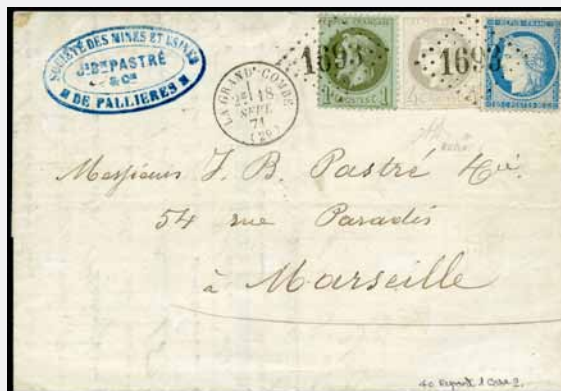 SOCIÉTÉ DES MINES ET USINES
Jh Bte PASTRÉ
& Cie
DE PALLIERES
LA GRAND-COMBE
2E 18
SEPT
71
(29)
1693
1693
1
4C
Messieurs J. B. Pastré & Cie
54 rue Paradis
à Marseille